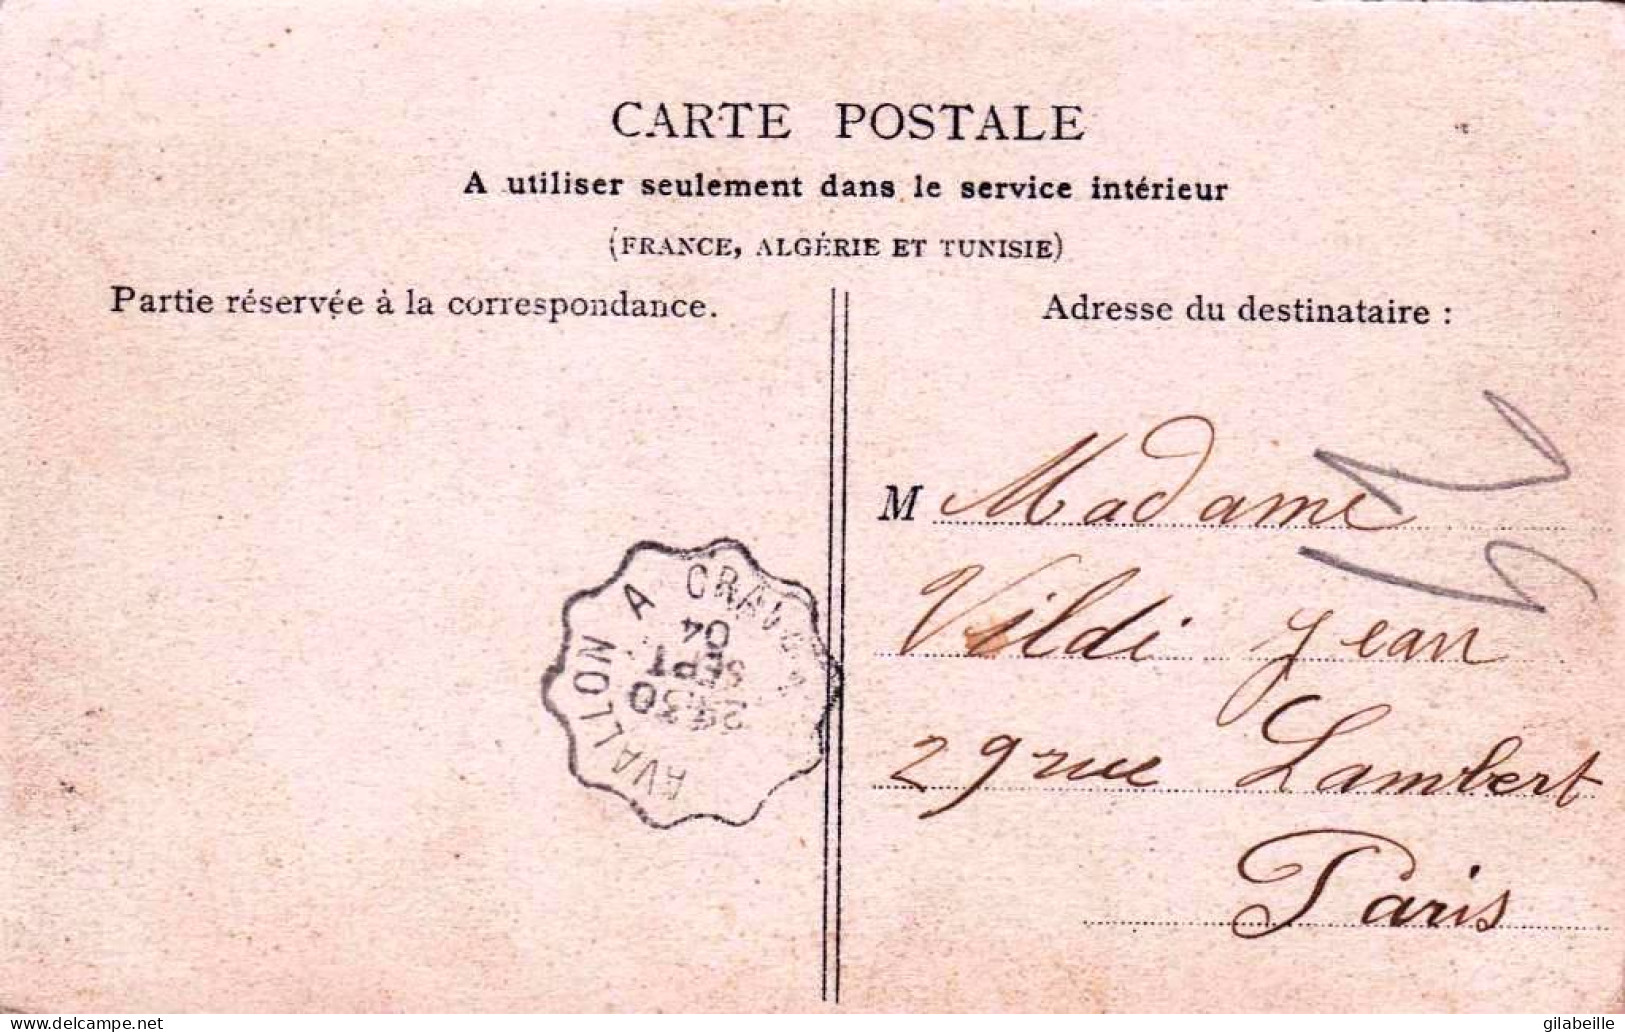 CARTE POSTALE
A utiliser seulement dans le service intérieur
(FRANCE, ALGÉRIE ET TUNISIE)
Partie réservée à la correspondance.
Adresse du destinataire :
M Madame
Vildi Jean
29 rue Lambert
Paris
AVALLON A
30
SEPT
04
delcampe.net
gilabeille